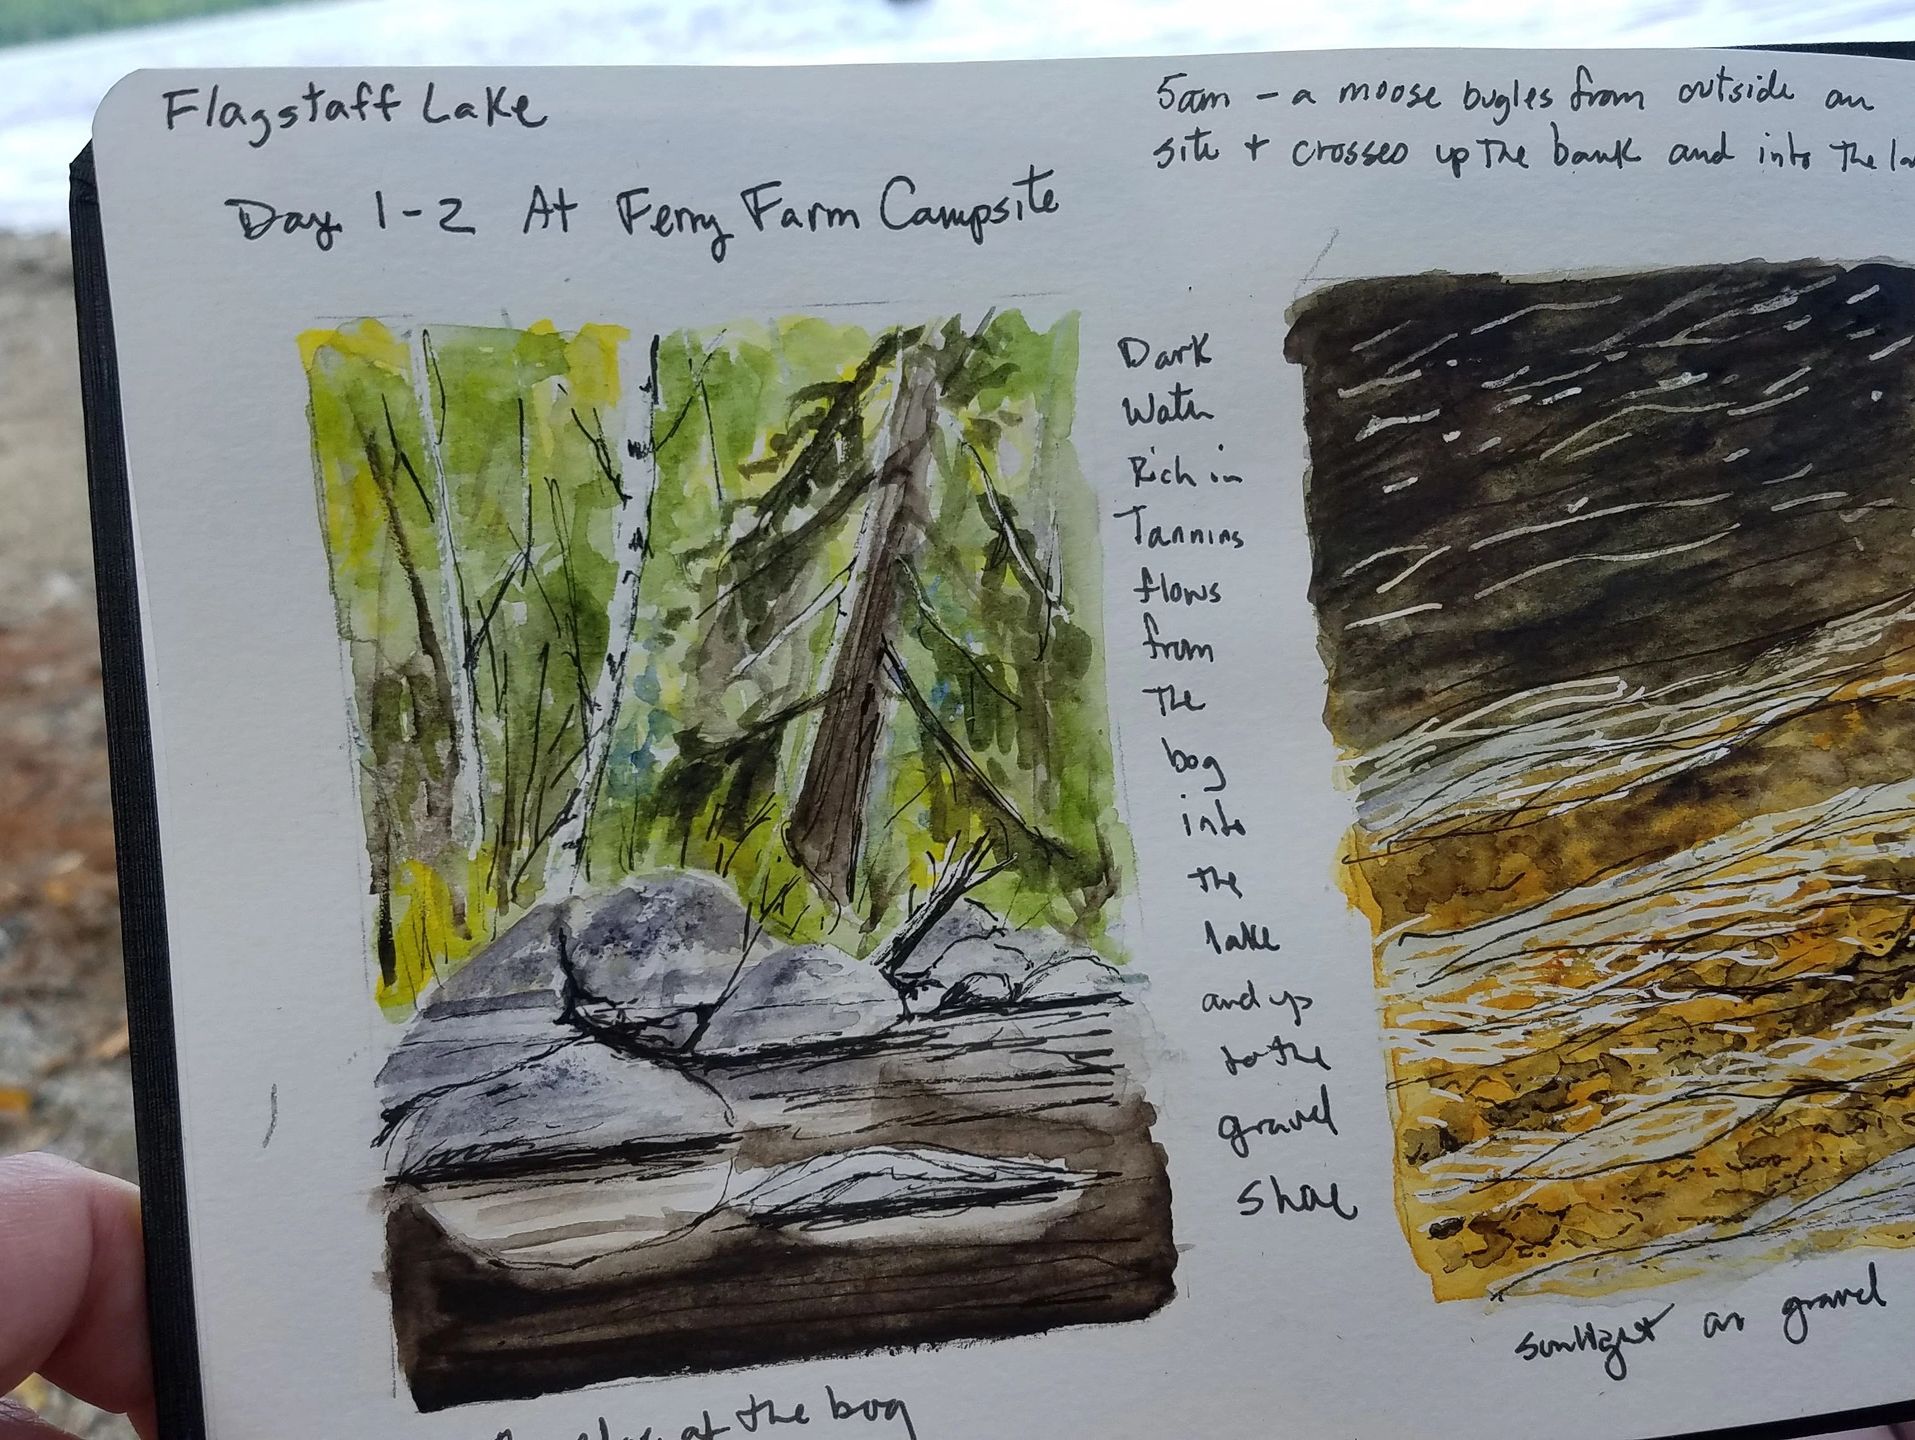 Flagstaff Lake
Day 1-2 At Ferry Farm Campsite
5am - a moose bugles from outside our
site + crossed up the bank and into the la
Dark
Water
Rich in
Tannins
flows
from
the
bog
into
the
lake
and up
to the
gravel
shore
at the bog
sunlight on gravel